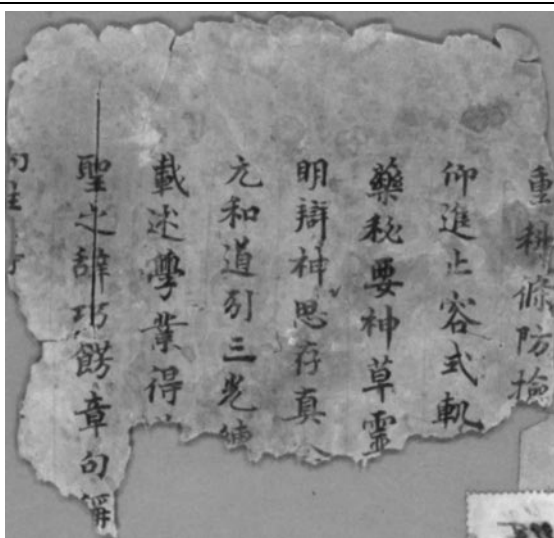 重科條防撿
仰進止容式軌
藥秘要神草靈
明辯神思存真
元和道引三光練
載述學業得
聖之辭巧餝章句稱